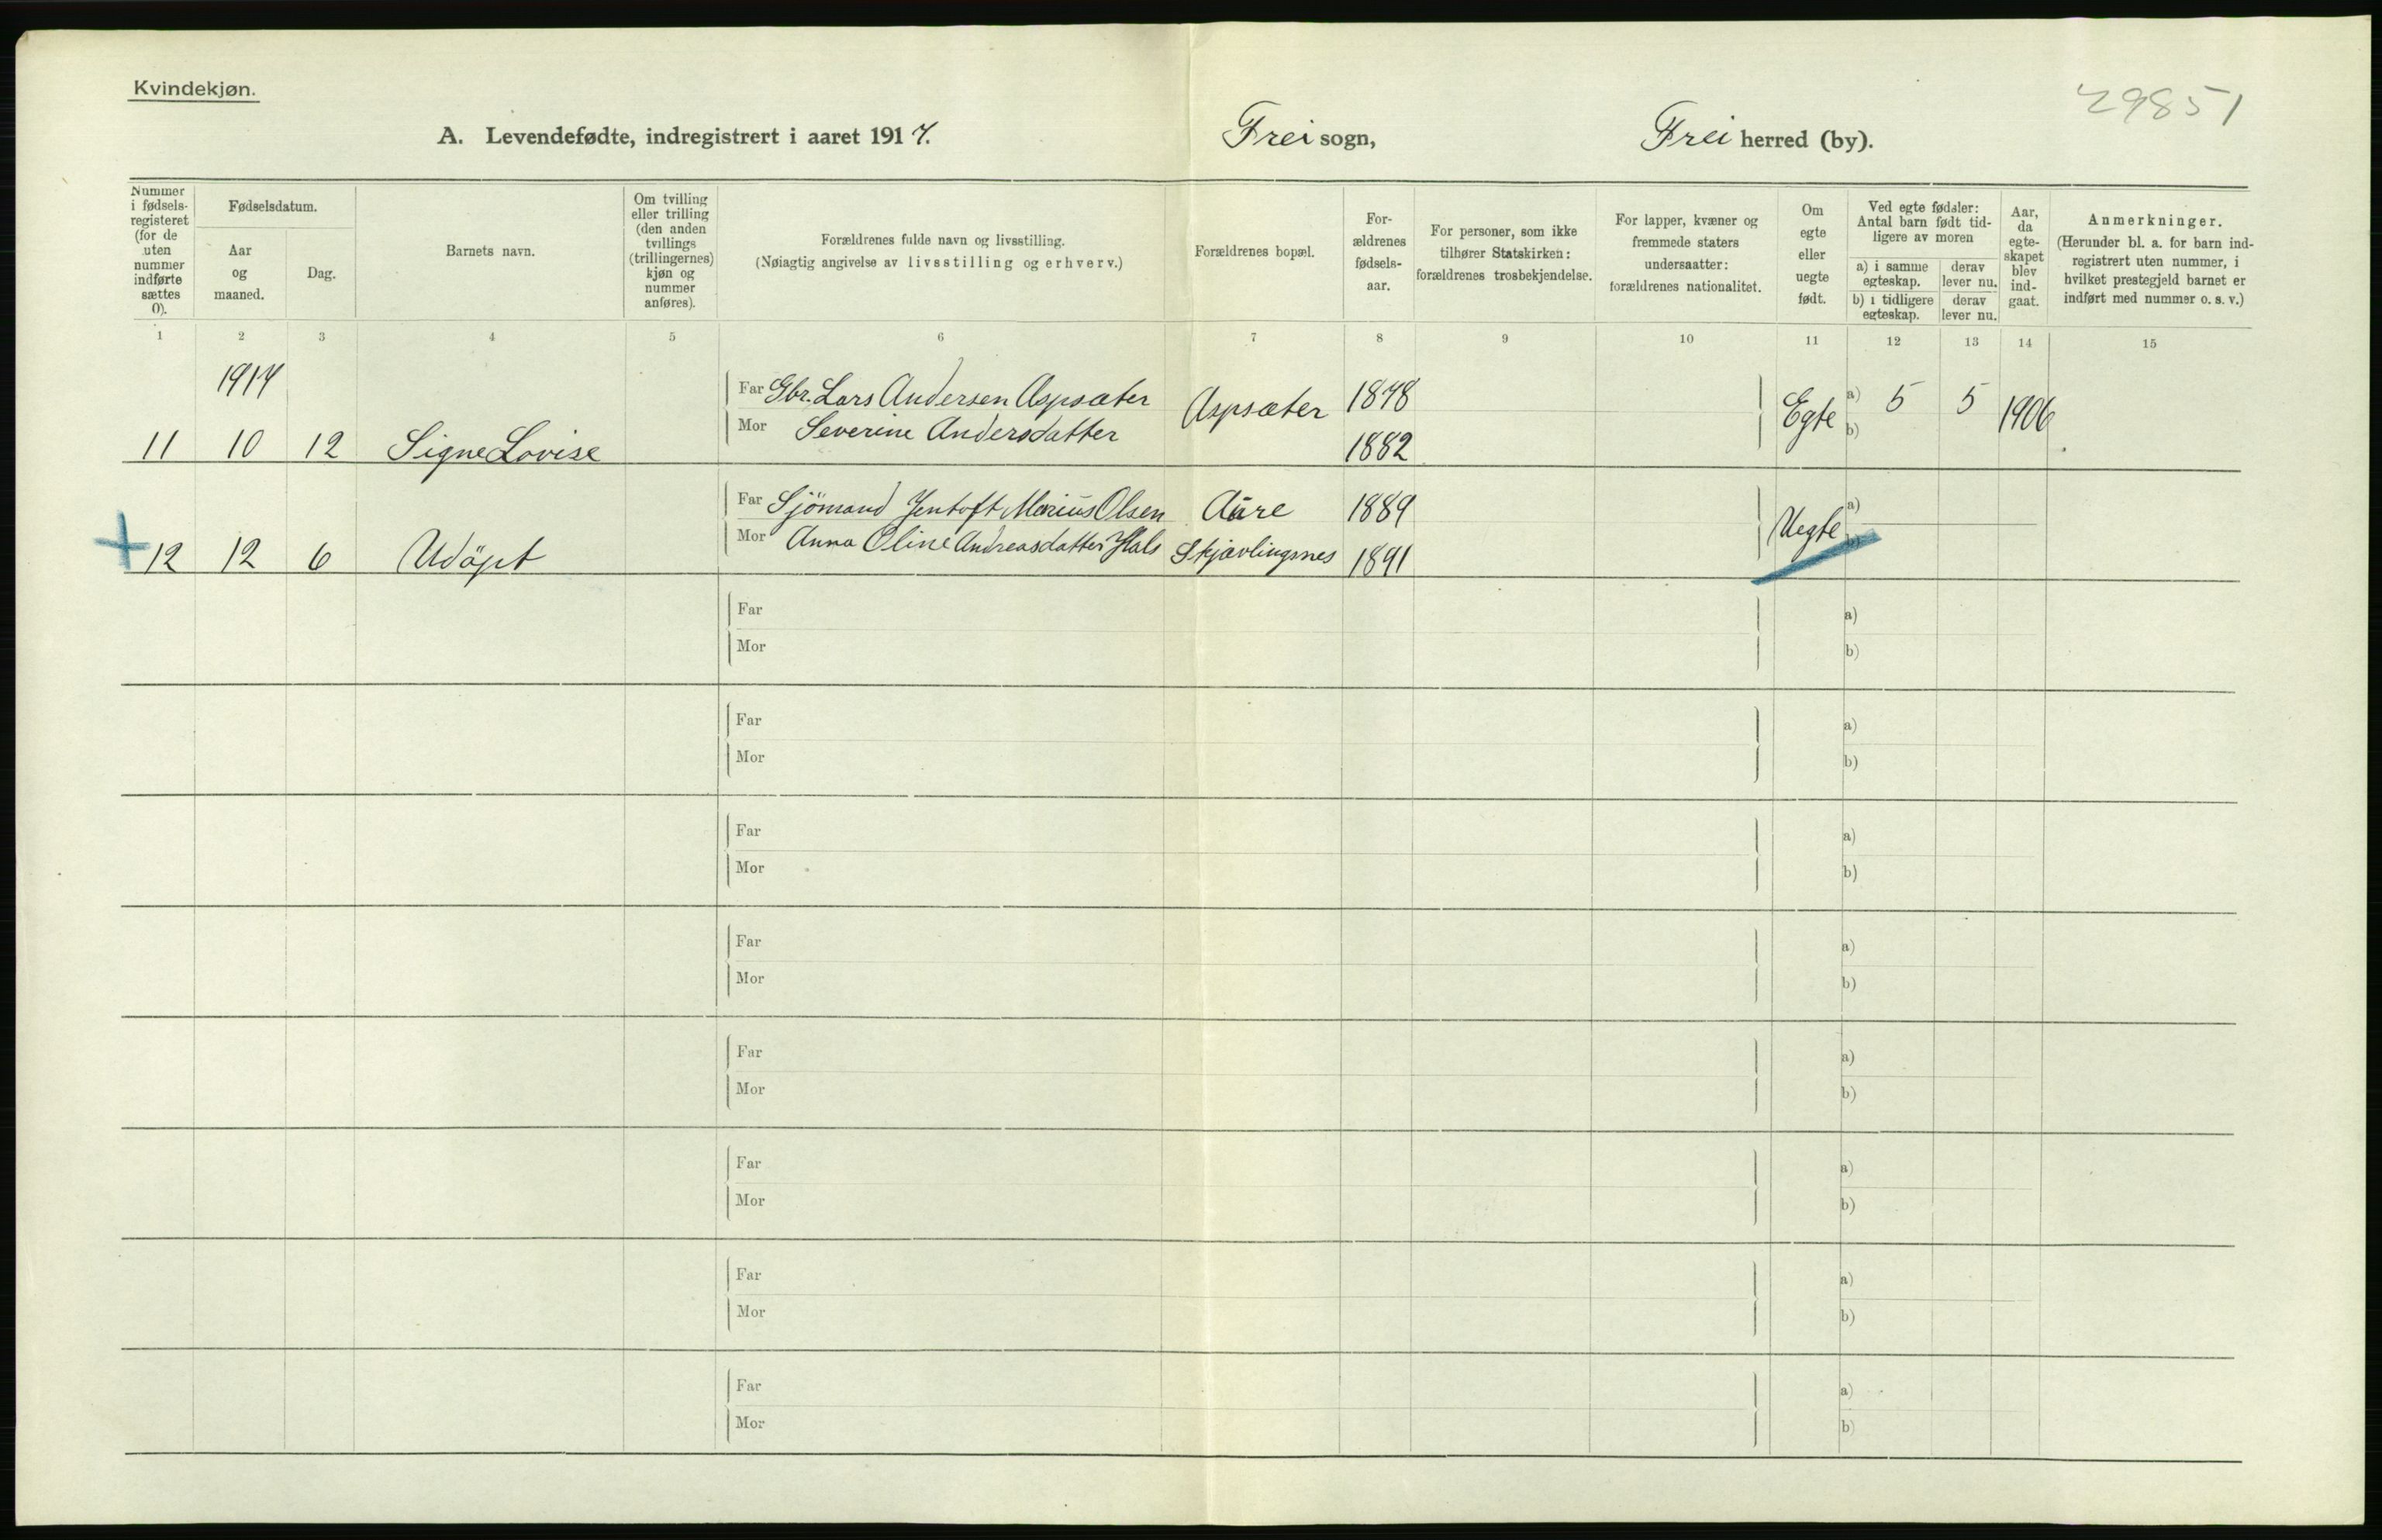 Kvindekjøn.
29851
A. Levendefødte, indregistrert i aaret 1917. Frei sogn, Frei herred (by).
Nummer i fødsels-registeret (for de uten nummer indførte sættes 0).
Fødselsdatum.
Aar og maaned.
Dag.
Barnets navn.
Om tvilling eller trilling (den anden tvillings (trillingernes) kjøn og nummer anføres).
Forældrenes fulde navn og livsstilling.
(Nøiagtig angivelse av livsstilling og erhverv.)
Forældrenes bopæl.
For-ældrenes fødsels-aar.
For personer, som ikke tilhører Statskirken: forældrenes trosbekjendelse.
For lapper, kvæner og fremmede staters undersaatter: forældrenes nationalitet.
Om egte eller uegte født.
Ved egte fødsler: Antal barn født tid-ligere av moren
a) i samme egteskap.
derav lever nu.
b) i tidligere egteskap.
derav lever nu.
Aar, da egte-skapet blev ind-gaat.
Anmerkninger.
(Herunder bl. a. for barn ind-registrert uten nummer, i hvilket prestegjeld barnet er indført med nummer o. s. v.)
1 2 3 4 5 6 7 8 9 10 11 12 13 14 15
1917
Far Gbr. Lars Andersen Aspsæter Aspsæter 1878 Egte a) 5 5 1906
Mor Severine Andersdatter 1882 b)
11 10 12 Signe Lovise
Far Sjömand Jentoft Marius Olsen Aure 1889 Uegte a)
Mor Anna Oline Andreasdatter Hals Skjævlingsnes 1891 b)
+ 12 12 6 Udöpt
Far a)
Mor b)
Far a)
Mor b)
Far a)
Mor b)
Far a)
Mor b)
Far a)
Mor b)
Far a)
Mor b)
Far a)
Mor b)
Far a)
Mor b)